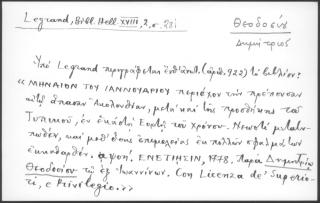 Legrand, Bibl. Hell. XVIII, 2, σ. 281
Θεοδοσίου
Δημήτριος
Ὑπὸ Legrand περιγράφεται (ἀριθ. 922) τὸ βιβλίον:
«ΜΗΝΑΙΟΝ ΤΟΥ ΙΑΝΝΟΥΑΡΙΟΥ περιέχον τὴν πρέπουσαν
αὐτῷ ἅπασαν Ἀκολουθίαν, μετὰ καὶ τῆς προσθήκης τοῦ
Τυπικοῦ, ἐν ἑκάστῃ Ἑορτῇ τοῦ χρόνου. Νεωστὶ μετατυ-
πωθέν, καὶ μεθ' ὅσης ἐπιμελείας ἐκ πολλῶν σφαλμάτων
ἐκκαθαρθέν. ͵αψοή. ΕΝΕΤΙΗΣΙΝ, 1778. Παρὰ Δημητρίῳ
Θεοδοσίου τῷ ἐξ Ἰωαννίνων. Con Licenza de' Superio-
ri, e Privilegio.»